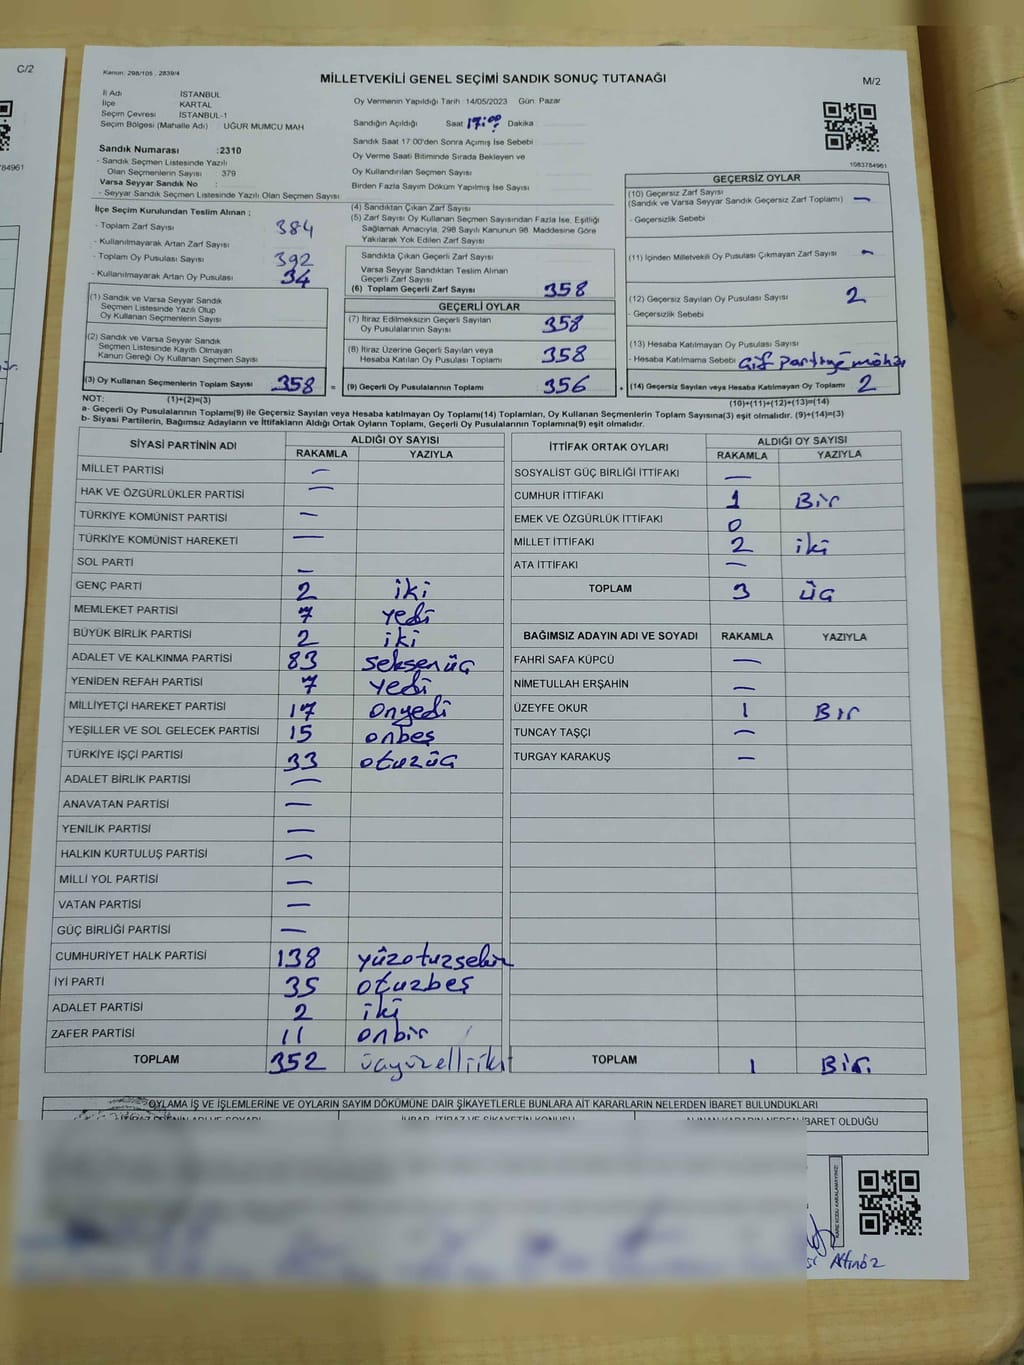 C/2
784961
Kanun: 298/105 , 2839/4
MİLLETVEKİLİ GENEL SEÇİMİ SANDIK SONUÇ TUTANAĞI
M/2
İl Adı İSTANBUL
İlçe KARTAL
Seçim Çevresi İSTANBUL-1
Seçim Bölgesi (Mahalle Adı) UĞUR MUMCU MAH
Sandık Numarası :2310
- Sandık Seçmen Listesinde Yazılı
Olan Seçmenlerin Sayısı : 379
Varsa Seyyar Sandık No :
- Seyyar Sandık Listesinde Yazılı Olan Seçmen Sayısı
İlçe Seçim Kurulundan Teslim Alınan ;
- Toplam Zarf Sayısı 384
- Kullanılmayarak Artan Zarf Sayısı
- Toplam Oy Pusulası Sayısı 392
- Kullanılmayarak Artan Oy Pusulası 34
(1) Sandık ve Varsa Seyyar Sandık
Seçmen Listesinde Yazılı Olup
Oy Kullanan Seçmenlerin Sayısı
(2) Sandık ve Varsa Seyyar Sandık
Seçmen Listesinde Kayıtlı Olmayan
Kanun Gereği Oy Kullanan Seçmen Sayısı
(3) Oy Kullanan Seçmenlerin Toplam Sayısı 358 =
Oy Vermenin Yapıldığı Tarih :14/05/2023 Gün: Pazar
Sandığın Açıldığı Saat 17:00 Dakika
Sandık Saat 17:00'den Sonra Açımış İse Sebebi
Oy Verme Saati Bitiminde Sırada Bekleyen ve
Oy Kullandırılan Seçmen Sayısı
Birden Fazla Sayım Döküm Yapılmış İse Sayısı
(4) Sandıktan Çıkan Zarf Sayısı
(5) Zarf Sayısı Oy Kullanan Seçmen Sayısından Fazla İse, Eşitliği
Sağlamak Amacıyla, 298 Sayılı Kanunun 98. Maddesine Göre
Yakılarak Yok Edilen Zarf Sayısı
Sandıkta Çıkan Geçerli Zarf Sayısı
Varsa Seyyar Sandıktan Teslim Alınan
Geçerli Zarf Sayısı
(6) Toplam Geçerli Zarf Sayısı 358
GEÇERLİ OYLAR
(7) İtiraz Edilmeksizin Geçerli Sayılan
Oy Pusulalarının Sayısı 358
(8) İtiraz Üzerine Geçerli Sayılan veya
Hesaba Katılan Oy Pusulası Toplamı 358
(9) Geçerli Oy Pusulalarının Toplamı 356 +
1083784961
GEÇERSİZ OYLAR
(10) Geçersiz Zarf Sayısı
(Sandık ve Varsa Seyyar Sandık Geçersiz Zarf Toplamı) —
- Geçersizlik Sebebi
(11) İçinden Milletvekili Oy Pusulası Çıkmayan Zarf Sayısı -
(12) Geçersiz Sayılan Oy Pusulası Sayısı 2
- Geçersizlik Sebebi
(13) Hesaba Katılmayan Oy Pusulası Sayısı
- Hesaba Katılmama Sebebi
(14) Geçersiz Sayılan veya Hesaba Katılmayan Oy Toplamı 2
NOT: (1)+(2)=(3) (10)+(11)+(12)+(13)=(14)
a- Geçerli Oy Pusulalarının Toplamı(9) ile Geçersiz Sayılan veya Hesaba katılmayan Oy Toplamı(14) Toplamları, Oy Kullanan Seçmenlerin Toplam Sayısına(3) eşit olmalıdır. (9)+(14)=(3)
b- Siyasi Partilerin, Bağımsız Adayların ve İttifakların Aldığı Ortak Oyların Toplamı, Geçerli Oy Pusulalarının Toplamına(9) eşit olmalıdır.
SİYASİ PARTİNİN ADI ALDIĞI OY SAYISI
RAKAMLA YAZIYLA
MİLLET PARTİSİ —
HAK VE ÖZGÜRLÜKLER PARTİSİ —
TÜRKİYE KOMÜNİST PARTİSİ —
TÜRKİYE KOMÜNİST HAREKETİ —
SOL PARTİ —
GENÇ PARTİ 2 iki
MEMLEKET PARTİSİ 7 yedi
BÜYÜK BİRLİK PARTİSİ 2 iki
ADALET VE KALKINMA PARTİSİ 83 seksenüç
YENİDEN REFAH PARTİSİ 7 yedi
MİLLİYETÇİ HAREKET PARTİSİ 17 onyedi
YEŞİLLER VE SOL GELECEK PARTİSİ 15 onbeş
TÜRKİYE İŞÇİ PARTİSİ 33 otuzüç
ADALET BİRLİK PARTİSİ —
ANAVATAN PARTİSİ —
YENİLİK PARTİSİ —
HALKIN KURTULUŞ PARTİSİ —
MİLLİ YOL PARTİSİ —
VATAN PARTİSİ —
GÜÇ BİRLİĞİ PARTİSİ —
CUMHURİYET HALK PARTİSİ 138 yüzotuzsekiz
İYİ PARTİ 35 otuzbeş
ADALET PARTİSİ 2 iki
ZAFER PARTİSİ 11 onbir
TOPLAM 352 üçyüzelliiki
İTTİFAK ORTAK OYLARI ALDIĞI OY SAYISI
RAKAMLA YAZIYLA
SOSYALİST GÜÇ BİRLİĞİ İTTİFAKI —
CUMHUR İTTİFAKI 1 Bir
EMEK VE ÖZGÜRLÜK İTTİFAKI 0
MİLLET İTTİFAKI 2 iki
ATA İTTİFAKI —
TOPLAM 3 üç
BAĞIMSIZ ADAYIN ADI VE SOYADI RAKAMLA YAZIYLA
FAHRİ SAFA KÜPCÜ —
NİMETULLAH ERŞAHİN —
ÜZEYFE OKUR 1 Bir
TUNCAY TAŞÇI —
TURGAY KARAKUŞ —
TOPLAM 1 Bir
OYLAMA İŞ VE İŞLEMLERİNE VE OYLARIN SAYIM DÖKÜMÜNE DAİR ŞİKAYETLERLE BUNLARA AİT KARARLARIN NELERDEN İBARET BULUNDUKLARI
İBARET OLDUĞU
Altınöz